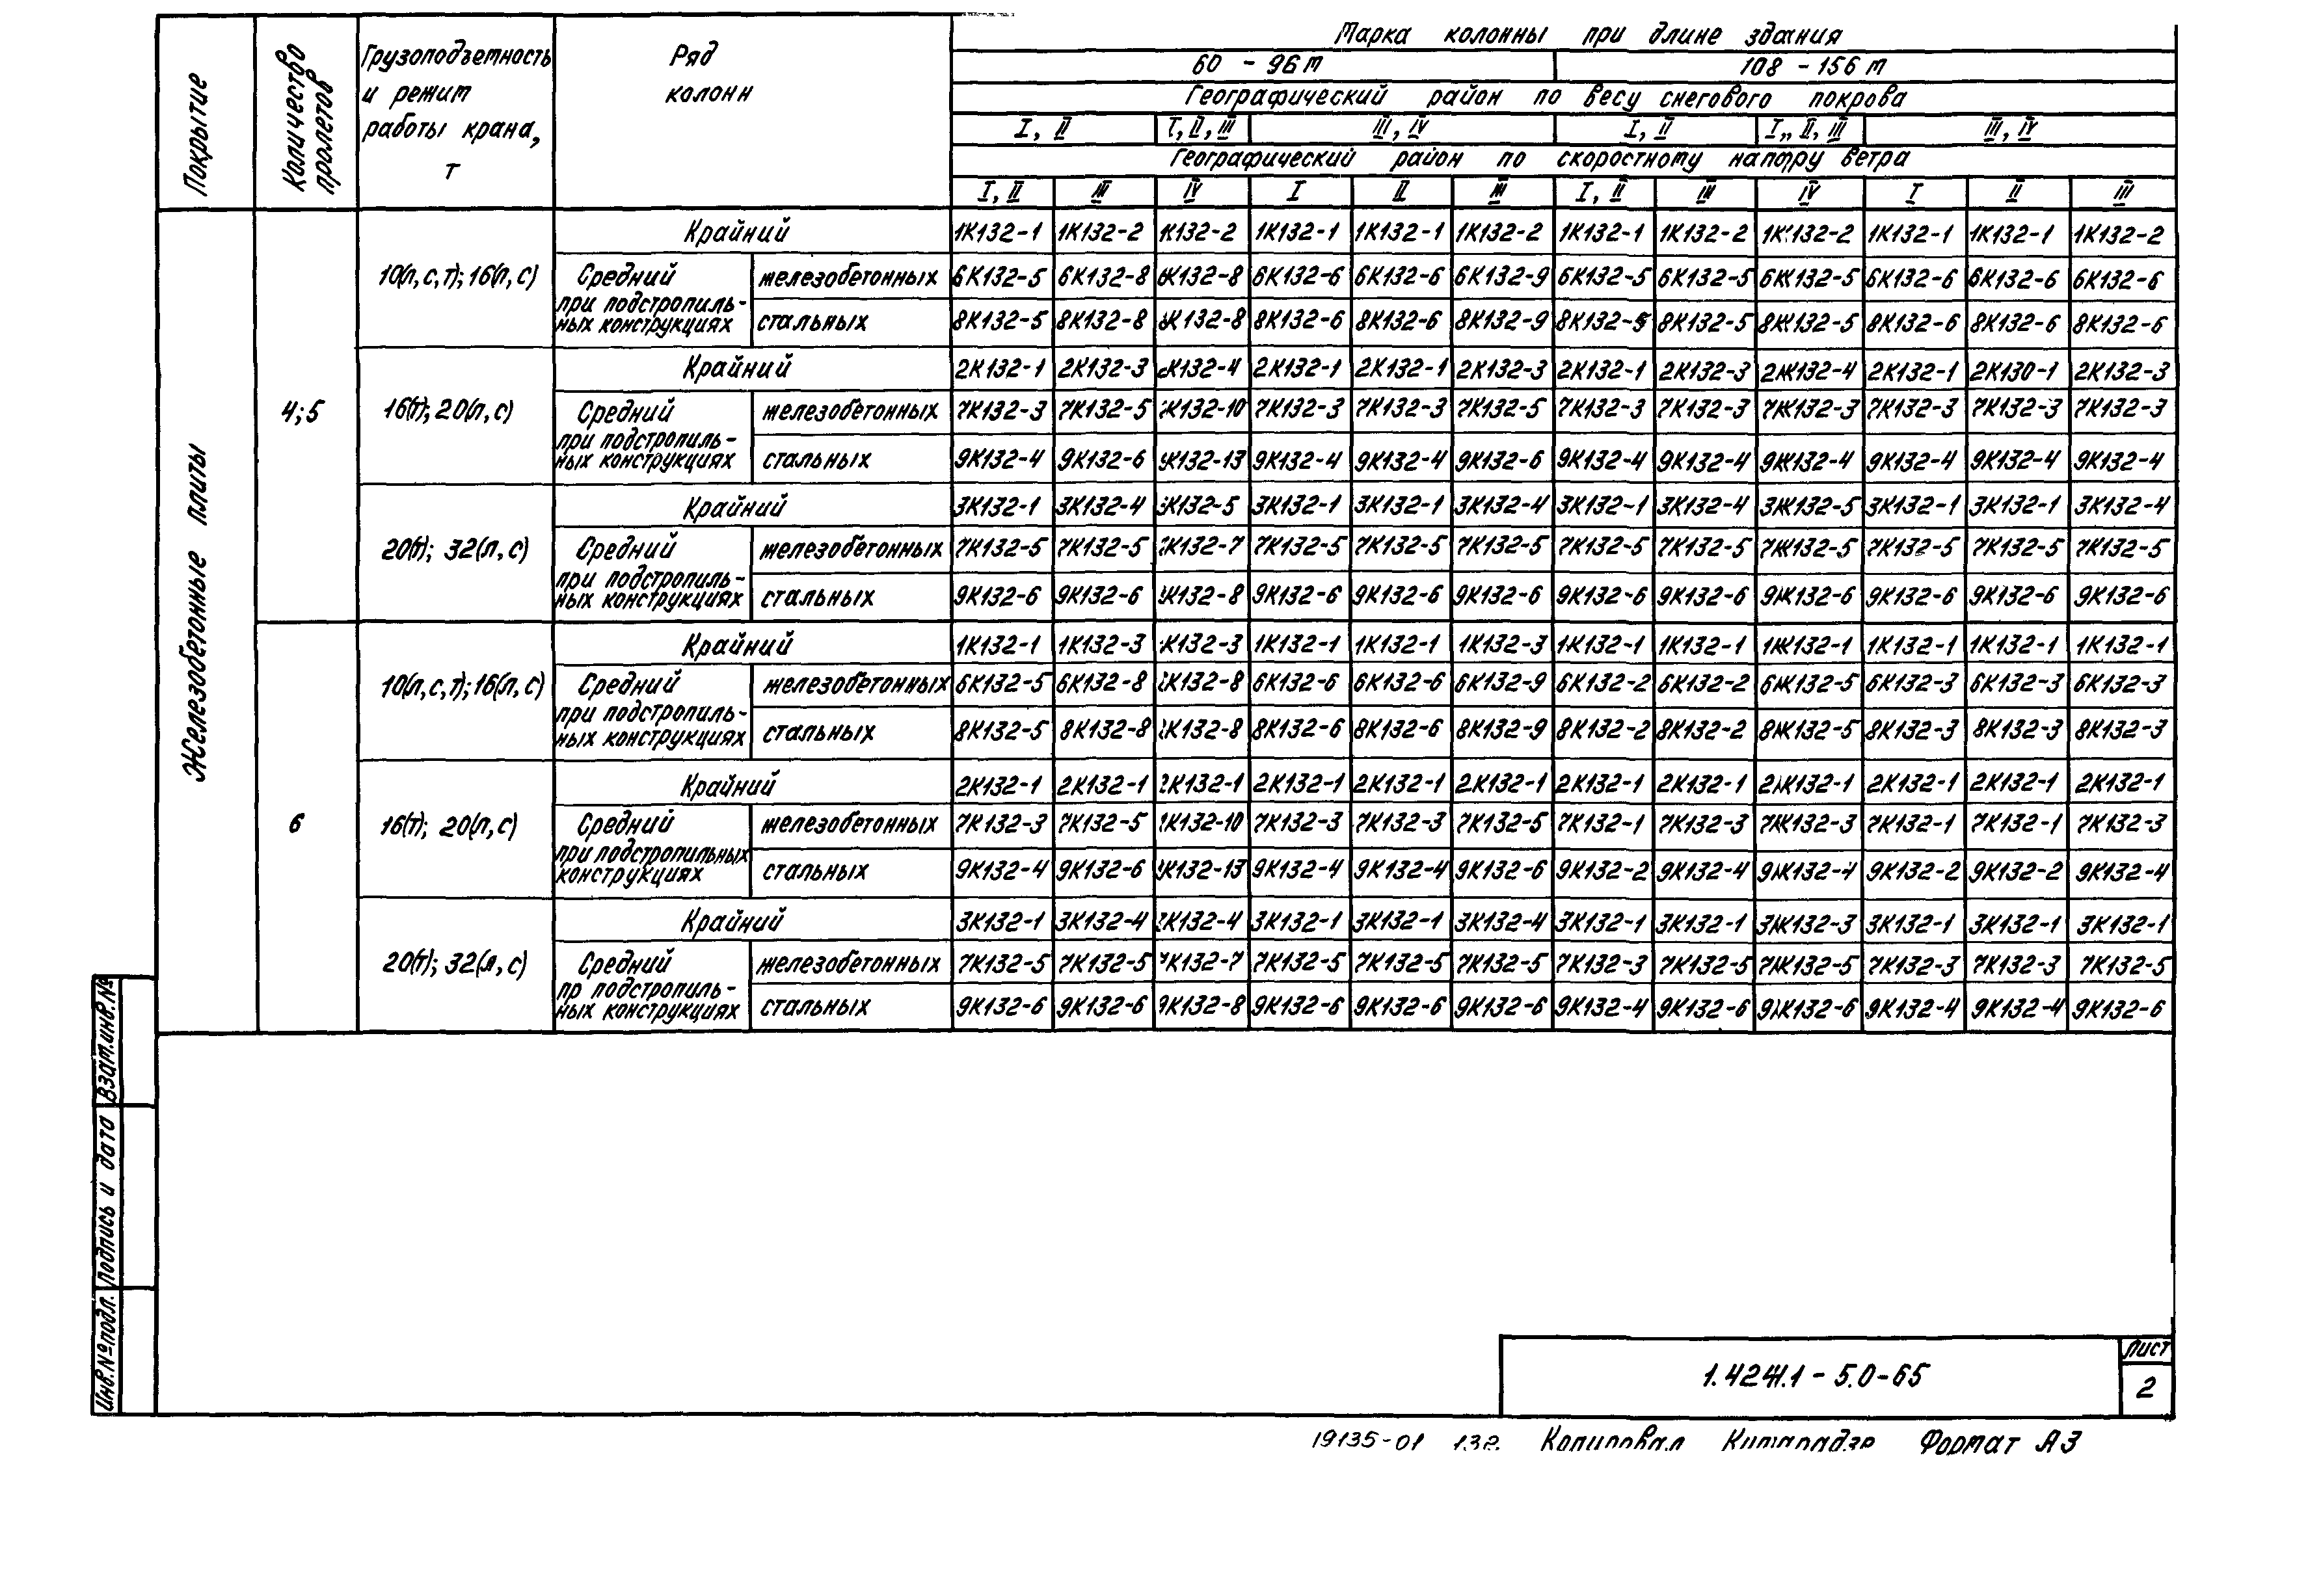 Покрытие
Количество пролетов
Грузоподъемность и режим работы крана, т
Ряд колонн
Марка колонны при длине здания
60 - 96 м
108 - 156 м
Географический район по весу снегового покрова
I, II I, II, III III, IV I, II I,, II, III III, IV
Географический район по скоростному напору ветра
I, II III IV I II III I, II III IV I II III
Железобетонные плиты
4; 5
10(л, с, т); 16(л, с)
Крайний 1К132-1 1К132-2 К132-2 1К132-1 1К132-1 1К132-2 1К132-1 1К132-2 1К132-2 1К132-1 1К132-1 1К132-2
Средний при подстропиль-
ных конструкциях
железобетонных 6К132-5 6К132-8 К132-8 6К132-6 6К132-6 6К132-9 6К132-5 6К132-5 6К132-5 6К132-6 6К132-6 6К132-6
стальных 8К132-5 8К132-8 К132-8 8К132-6 8К132-6 8К132-9 8К132-5 8К132-5 8К132-5 8К132-6 8К132-6 8К132-6
16(т); 20(л, с)
Крайний 2К132-1 2К132-3 К132-4 2К132-1 2К132-1 2К132-3 2К132-1 2К132-3 2К132-4 2К132-1 2К130-1 2К132-3
Средний при подстропиль-
ных конструкциях
железобетонных 7К132-3 7К132-5 К132-10 7К132-3 7К132-3 7К132-5 7К132-3 7К132-3 7К132-3 7К132-3 7К132-3 7К132-3
стальных 9К132-4 9К132-6 К132-13 9К132-4 9К132-4 9К132-6 9К132-4 9К132-4 9К132-4 9К132-4 9К132-4 9К132-4
20(т); 32(л, с)
Крайний 3К132-1 3К132-4 К132-5 3К132-1 3К132-1 3К132-4 3К132-1 3К132-4 3К132-5 3К132-1 3К132-1 3К132-4
Средний при подстропиль-
ных конструкциях
железобетонных 7К132-5 7К132-5 К132-7 7К132-5 7К132-5 7К132-5 7К132-5 7К132-5 7К132-5 7К132-5 7К132-5 7К132-5
стальных 9К132-6 9К132-6 К132-8 9К132-6 9К132-6 9К132-6 9К132-6 9К132-6 9К132-6 9К132-6 9К132-6 9К132-6
6
10(л, с, т); 16(л, с)
Крайний 1К132-1 1К132-3 К132-3 1К132-1 1К132-1 1К132-3 1К132-1 1К132-1 1К132-1 1К132-1 1К132-1 1К132-1
Средний при подстропиль-
ных конструкциях
железобетонных 6К132-5 6К132-8 К132-8 6К132-6 6К132-6 6К132-9 6К132-2 6К132-2 6К132-5 6К132-3 6К132-3 6К132-3
стальных 8К132-5 8К132-8 К132-8 8К132-6 8К132-6 8К132-9 8К132-2 8К132-2 8К132-5 8К132-3 8К132-3 8К132-3
16(т); 20(л, с)
Крайний 2К132-1 2К132-1 К132-1 2К132-1 2К132-1 2К132-1 2К132-1 2К132-1 2К132-1 2К132-1 2К132-1 2К132-1
Средний при подстропильных
конструкциях
железобетонных 7К132-3 7К132-5 К132-10 7К132-3 7К132-3 7К132-5 7К132-1 7К132-3 7К132-3 7К132-1 7К132-1 7К132-3
стальных 9К132-4 9К132-6 К132-13 9К132-4 9К132-4 9К132-6 9К132-2 9К132-4 9К132-4 9К132-2 9К132-2 9К132-4
20(т); 32(л, с)
Крайний 3К132-1 3К132-4 К132-4 3К132-1 3К132-1 3К132-4 3К132-1 3К132-1 3К132-3 3К132-1 3К132-1 3К132-1
Средний пр подстропиль-
ных конструкциях
железобетонных 7К132-5 7К132-5 К132-7 7К132-5 7К132-5 7К132-5 7К132-3 7К132-5 7К132-5 7К132-3 7К132-3 7К132-5
стальных 9К132-6 9К132-6 К132-8 9К132-6 9К132-6 9К132-6 9К132-4 9К132-6 9К132-6 9К132-4 9К132-4 9К132-6
Взам.инв.№
Подпись и дата
Инв.№подл.
1.424.1 - 5.0-65
Лист
2
19135-01 132 Копировал Формат А3